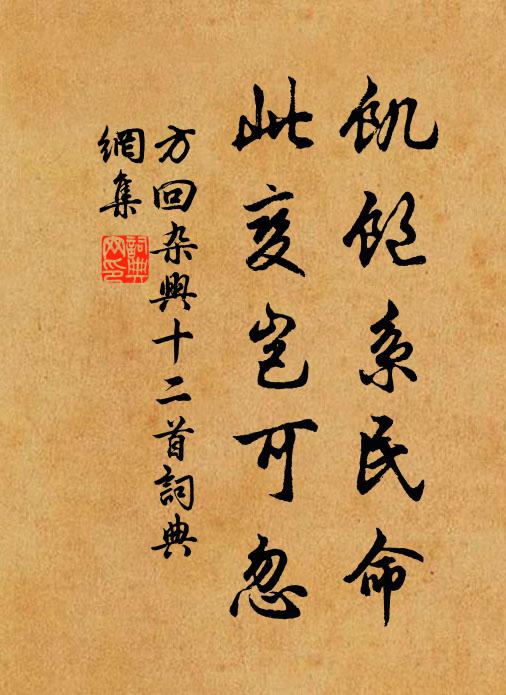 飢飽系民命
此变岂可忽
方回杂興十二首詞典
網集
詞典
网印